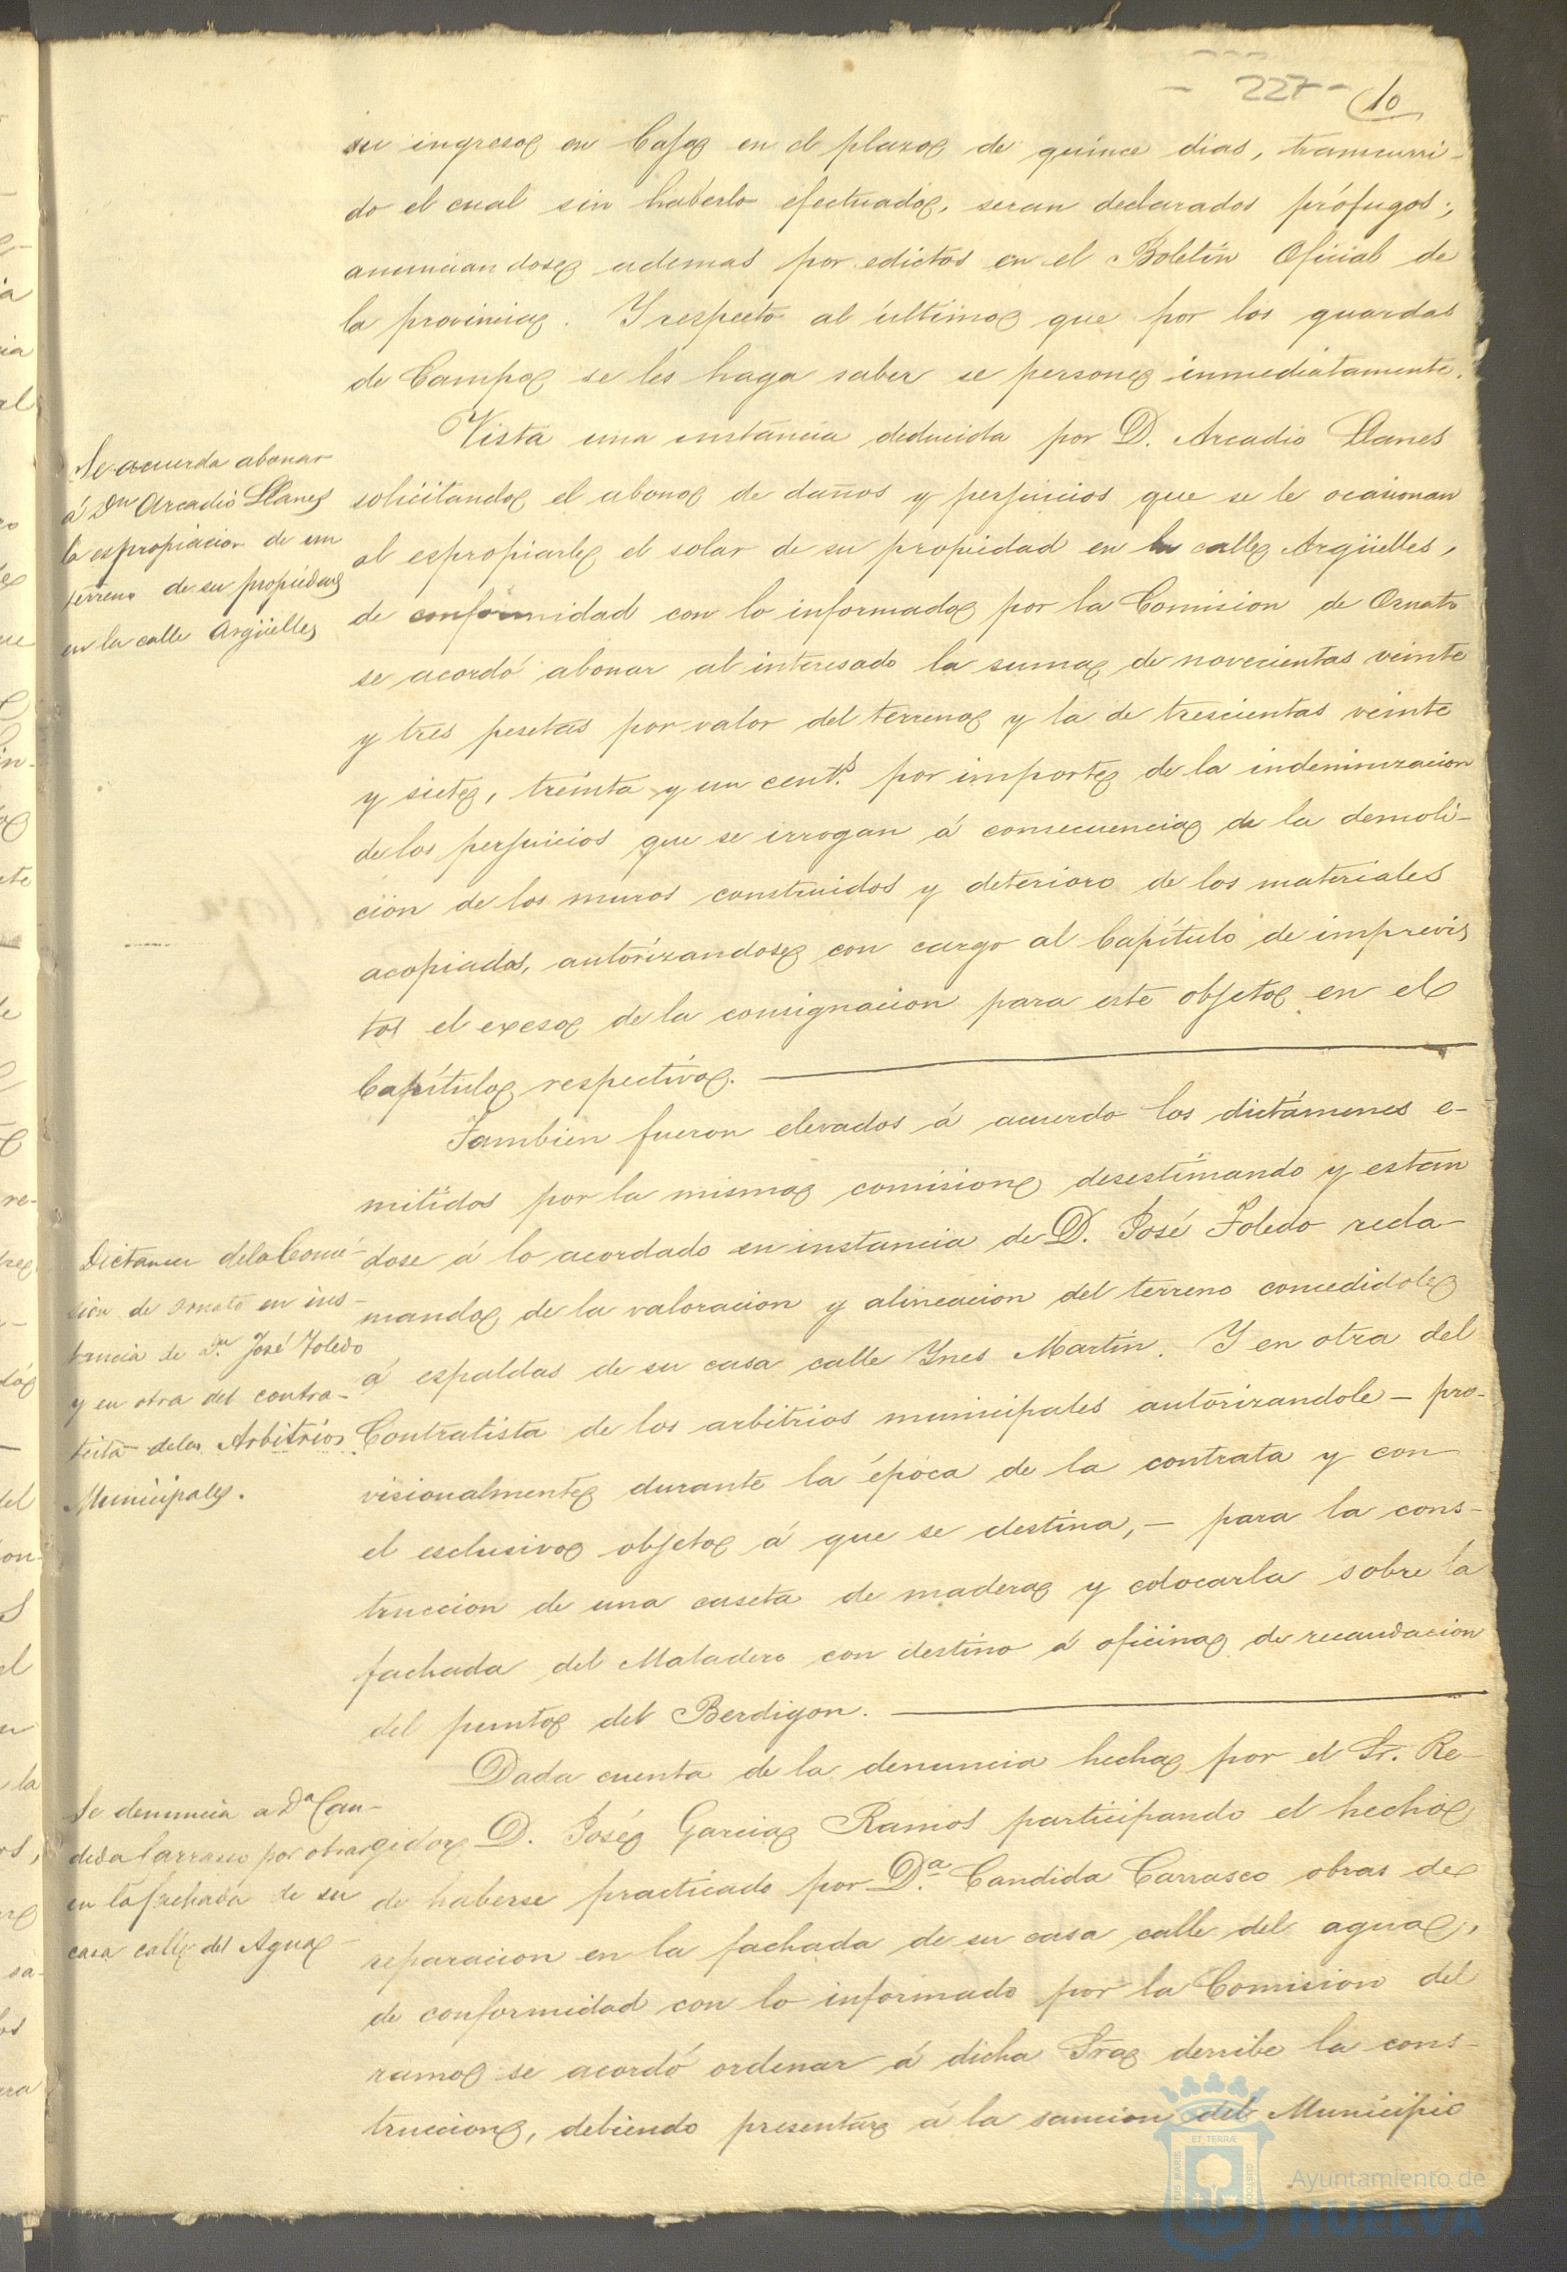 - 227 - 10
su ingreso en Caja en el plazo de quince dias, transcurri-
do el cual sin haberlo efectuado, seran declarados prófugos;
anunciandose ademas por edictos en el Boletin Oficial de
la provincia. Y respecto al último que por los guardas
de Campo se les haga saber se persone inmediatamente.
Se acuerda abonar
á Dn Arcadio Llanes
la espropiacion de un
terreno de su propiedad
en la calle Argüelles
Vista una instancia deducida por D. Arcadio Llanes
solicitando el abono de daños y perjuicios que se le ocasionan
al espropiarle el solar de su propiedad en la calle Argüelles,
de conformidad con lo informado por la Comision de Ornato
se acordó abonar al interesado la suma de novecientas veinte
y tres pesetas por valor del terreno y la de trescientas veinte
y siete, treinta y un cents. por importe de la indemnizacion
de los perjuicios que se irrogan á consecuencia de la demoli-
cion de los muros construidos y deterioro de los materiales
acopiados, autorizandose con cargo al Capítulo de imprevis
tos el exeso de la consignacion para este objeto en el
Capítulo respectivo.
Dictamen de la Comi-
sion de ornato en ins-
tancia de Dn. José Toledo
y en otra del contra-
tista de los Arbitrios
Municipales.
Tambien fueron elevados á acuerdo los dictámenes e-
mitidos por la misma comision desestimando y estan
dose á lo acordado en instancia de D. José Toledo recla-
mando de la valoracion y alineacion del terreno concedidole
á espaldas de su casa calle Ynes Martin. Y en otra del
Contratista de los arbitrios municipales autorizandole - pro-
visionalmente durante la época de la contrata y con
el esclusivo objeto á que se destina, - para la cons-
truccion de una caseta de madera y colocarla sobre la
fachada del Matadero con destino á oficina de recaudacion
del punto del Berdigon.
Se denuncia a Da Can-
dida Carrasco por obras
en la fachada de su
casa calle del Agua
Dada cuenta de la denuncia hecha por el Sr. Re-
gidor D. José Garcia Ramos participando el hecho
de haberse practicado por Da. Candida Carrasco obras de
reparacion en la fachada de su casa calle del agua,
de conformidad con lo informado por la Comision del
ramo se acordó ordenar á dicha Sra derribe la cons-
truccion, debiendo presentar á la sancion del Municipio
Ayuntamiento de
HUELVA